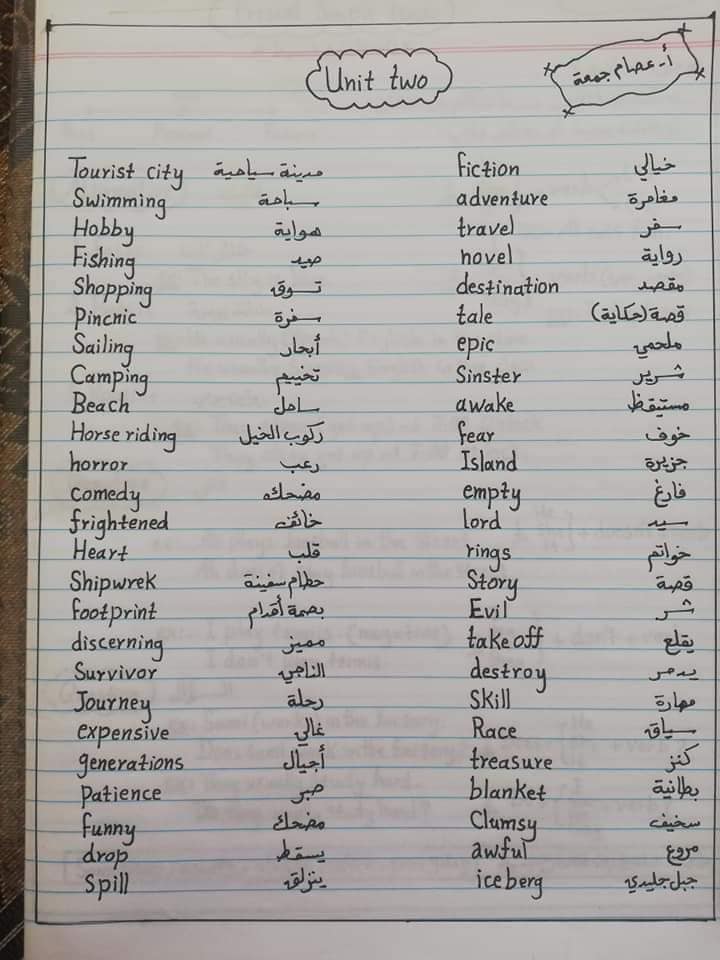 Unit two
أ. عصام جمعة
Tourist city مدينة سياحية
Swimming سباحة
Hobby هواية
Fishing صيد
Shopping تسوق
Pincnic سفرة
Sailing أبحار
Camping تخييم
Beach ساحل
Horse riding ركوب الخيل
horror رعب
comedy مضحك
frightened خائف
Heart قلب
Shipwrek حطام سفينة
footprint بصمة أقدام
discerning مميز
Survivor الناجي
Journey رحلة
expensive غالي
generations أجيال
Patience صبر
funny مضحك
drop يسقط
spill ينزلق
fiction خيالي
adventure مغامرة
travel سفر
novel رواية
destination مقصد
tale قصة (حكاية)
epic ملحمي
Sinster شرير
awake مستيقظ
fear خوف
Island جزيرة
empty فارغ
lord سيد
rings خواتم
Story قصة
Evil شر
take off يقلع
destroy يدمر
Skill مهارة
Race سباق
treasure كنز
blanket بطانية
Clumsy سخيف
awful مروع
iceberg جبل جليدي